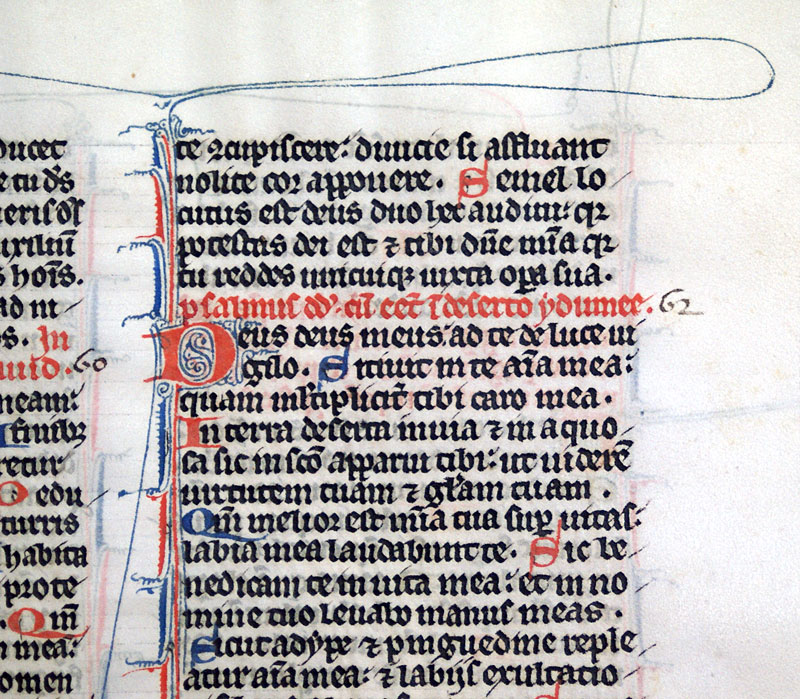 ducet
e tu d̄s
uxiliū
s hoīs.
ad ni
os. In
uid. 60
meam:
A finibꝫ
retur
D edu
turris
habita
prote
. Qm̄
n mea:
omen
te ꝯcupiscere: diuicie si affluant
nolite cor apponere. Semel lo
cutus est deus duo hec audiui: qꝛ
potestas dei est ⁊ tibi dn̄e mīa qꝛ
tu reddes unicuiqꝫ iuxta oꝑa sua.
psalmus dd̄. cū eēt ī deserto ydumee. 62
Deus deus meus ad te de luce ui
gilo. Sitiuit in te aīa mea:
quam ml̄tiplicit̄ tibi caro mea.
In terra deserta inuia ⁊ inaquo
sa sic in scō apparui tibi: ut uiderē
uirtutem tuam ⁊ gl̄am tuam.
Qm̄ melior est mīa tua suꝑ uitas:
labia mea laudabunt te. Sic be
nedicam te in uita mea: et in no
mine tuo leuabo manus meas.
Sicut adype ⁊ pinguedine reple
atur aīa mea: ⁊ labijs exultatio